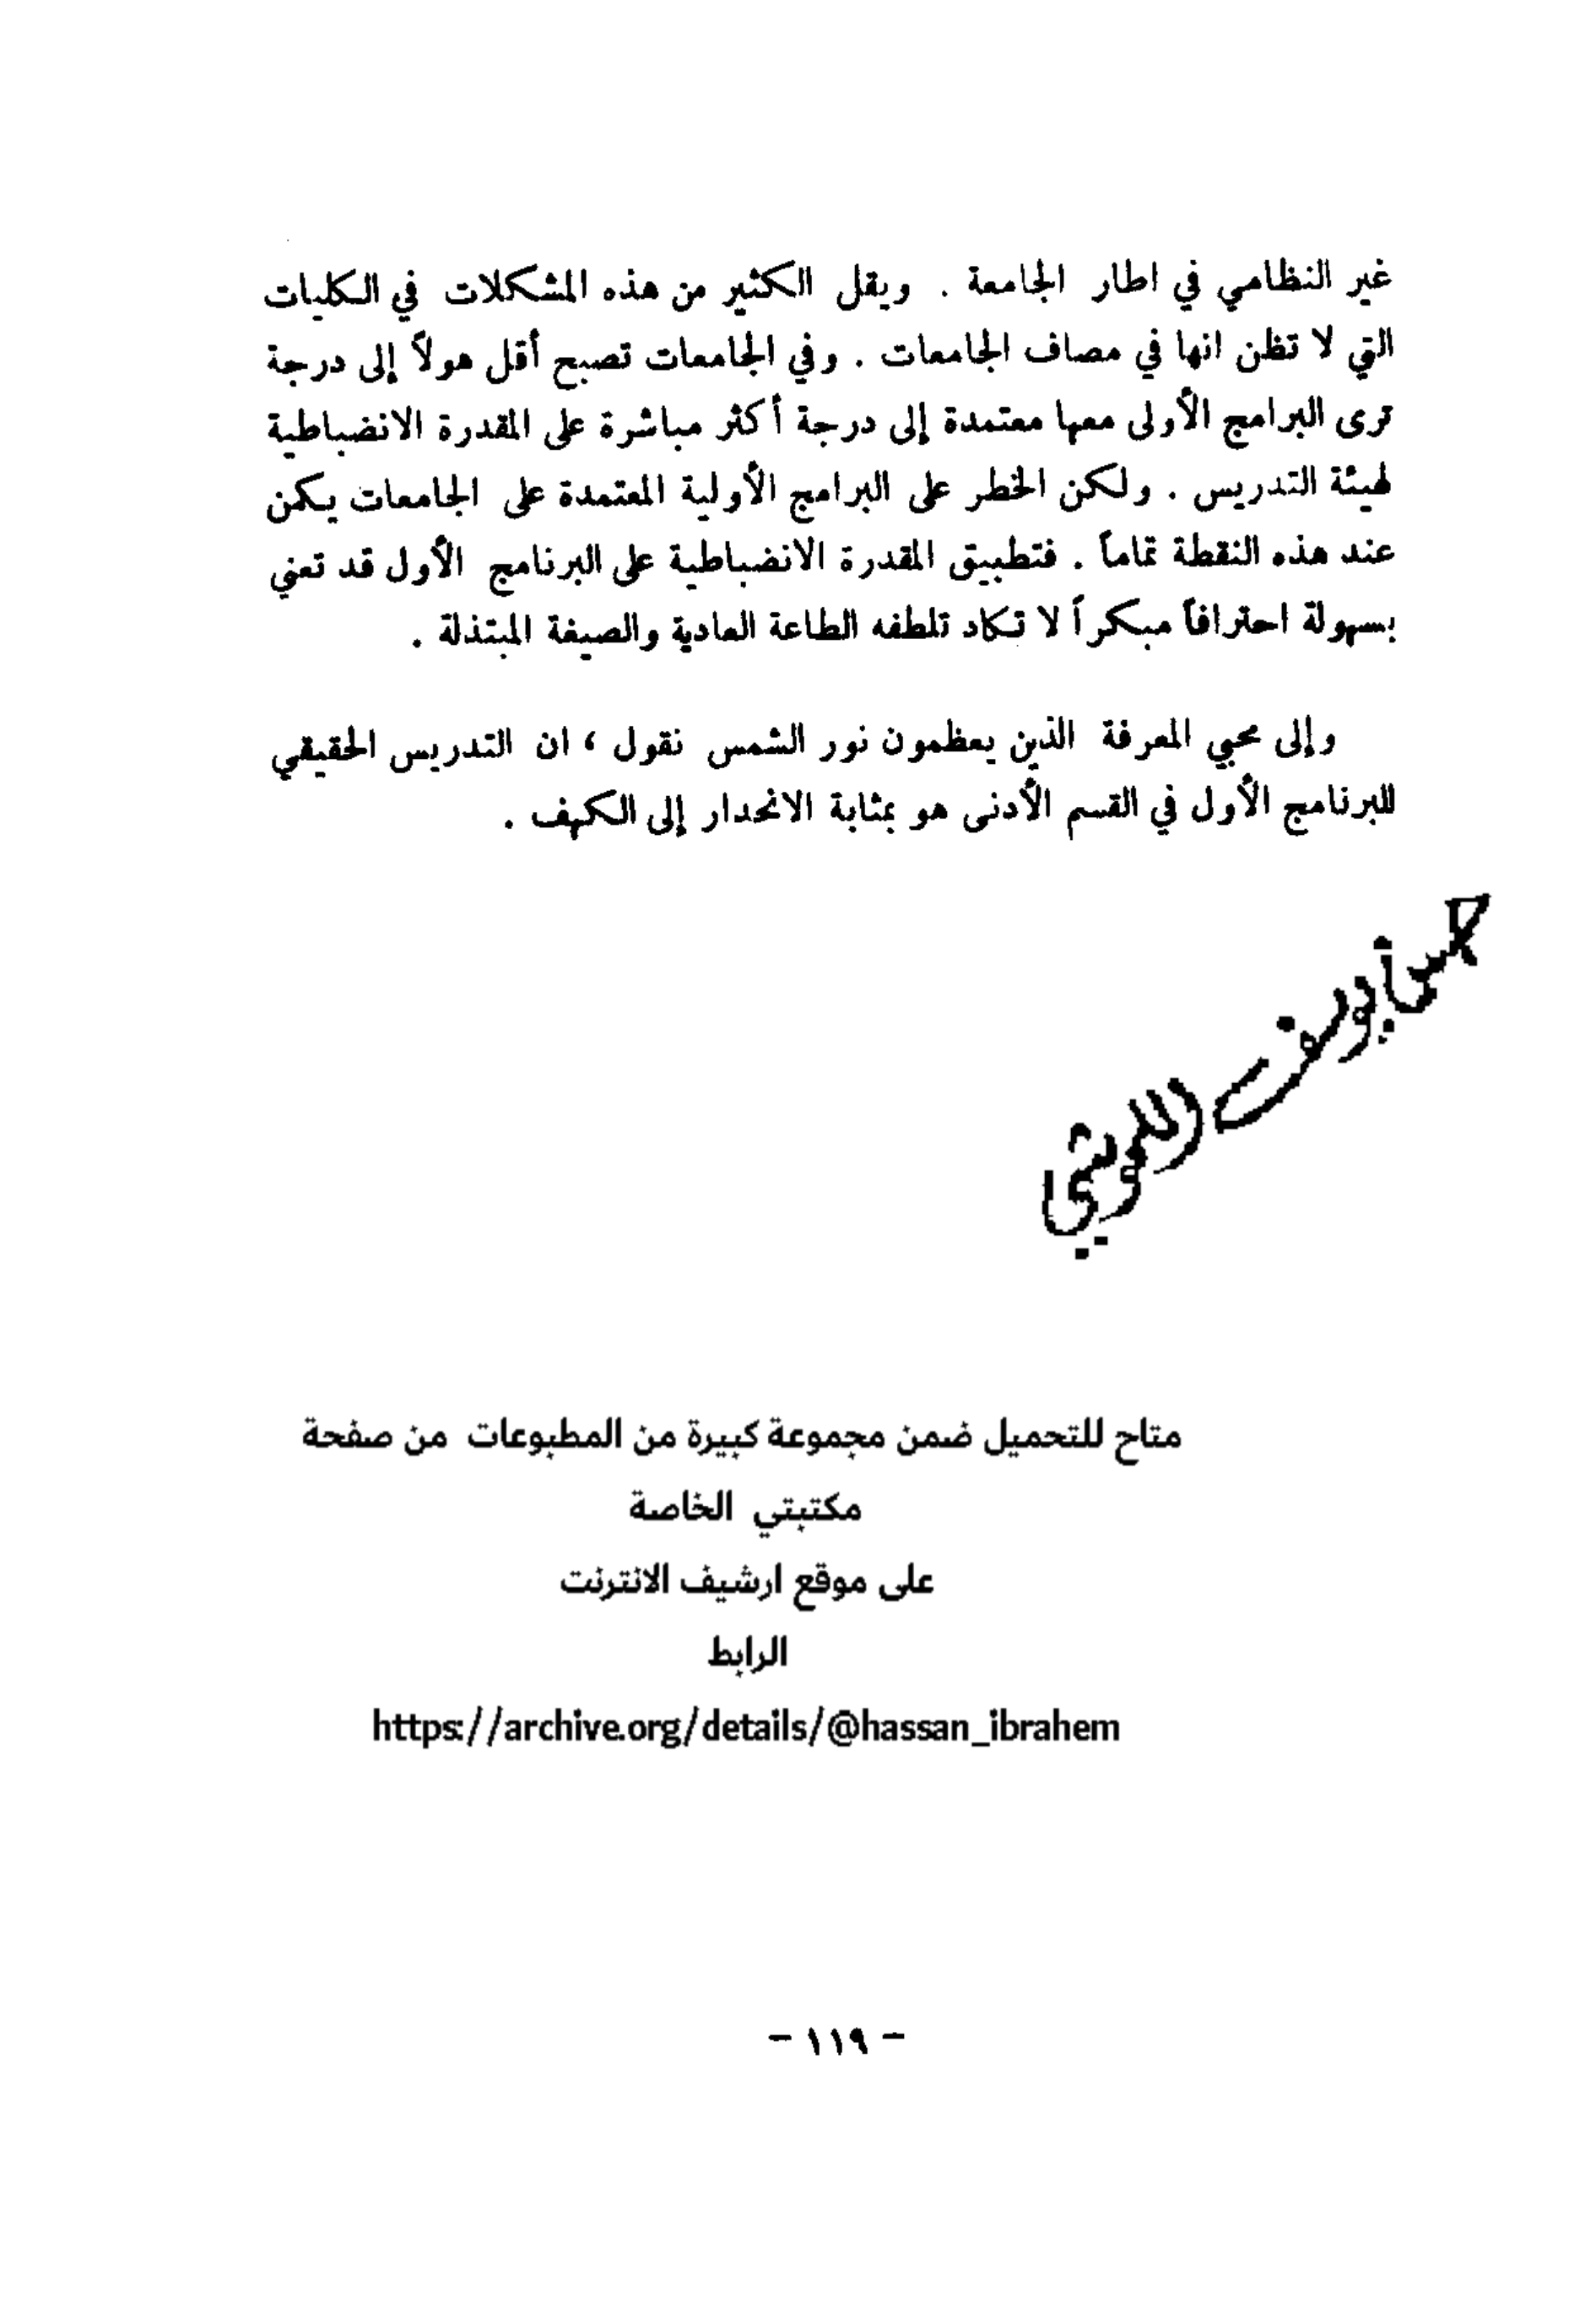 غير النظامي في اطار الجامعة . ويقل الكثير من هذه المشكلات في الكليات
التي لا تظن انها في مصاف الجامعات . وفي الجامعات تصبح أقل هولاً إلى درجة
ترى البرامج الأولى معها معتمدة إلى درجة أكثر مباشرة على المقدرة الانضباطية
لهيئة التدريس . ولكن الخطر على البرامج الأولية المعتمدة على الجامعات يكمن
عند هذه النقطة تماماً . فتطبيق المقدرة الانضباطية على البرنامج الأول قد تعني
بسهولة احترافاً مبكراً لا تكاد تلطفه الطاعة العادية والصيغة المبتذلة .
وإلى محبي المعرفة الذين يعظمون نور الشمس نقول ، ان التدريس الحقيقي
للبرنامج الأول في القسم الأدنى هو بمثابة الانحدار إلى الكهف .
متاح للتحميل ضمن مجموعة كبيرة من المطبوعات من صفحة
مكتبتي الخاصة
على موقع ارشيف الانترنت
الرابط
https://archive.org/details/@hassan_ibrahem
- ١١٩ -